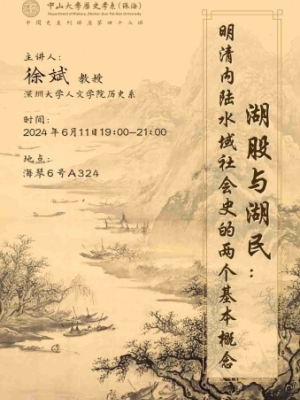 中山大学历史学系(珠海)
Department of History (Zhuhai), Sun Yat-sen University
中国史系列讲座第四十七讲
主讲人:
徐斌 教授
深圳大学人文学院历史系
时间:
2024年6月11日19:00—21:00
地点:
海琴6号A324
湖股与湖民:
明清内陆水域社会史的两个基本概念